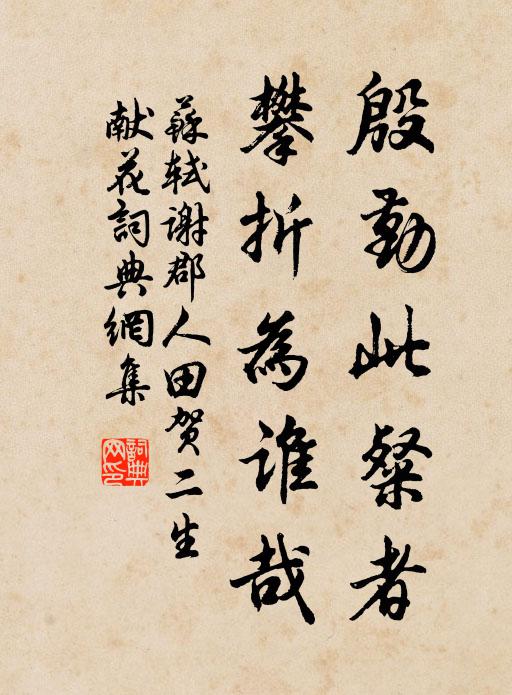 殷勤此粲者
攀折為誰哉
蘇軾谢郡人田贺二生
献花詞典網集
詞典網印